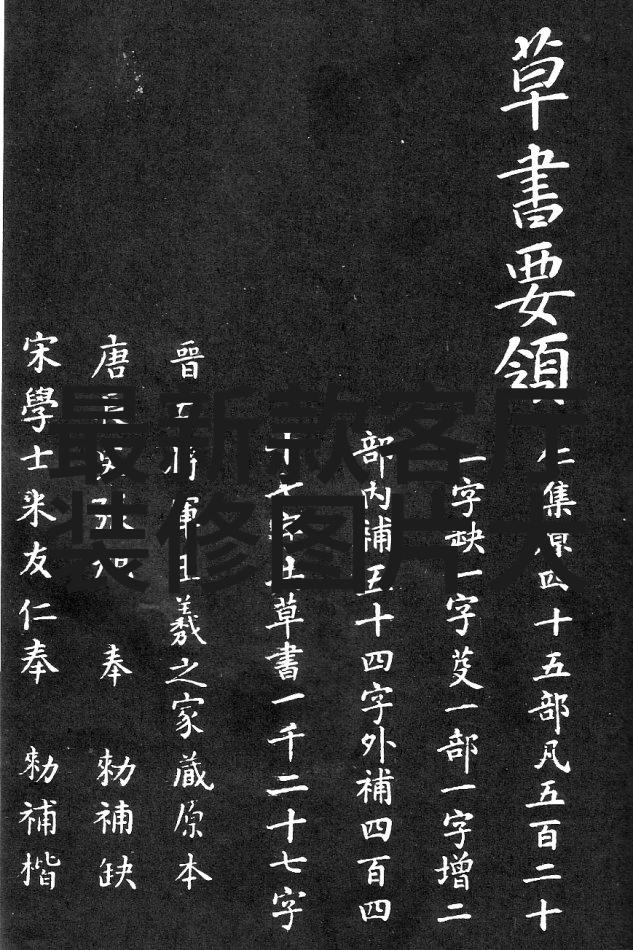 草書要領
集四十五部凡五百二十
一字缺一字芟一部一字增二
部内補五十四字外補四百四
十七草書一千二十七字
晉右將軍王羲之家藏原本
唐長史張旭 奉 勅補缺
宋學士米友仁奉 勅補楷
最新款客厅
装修图片大